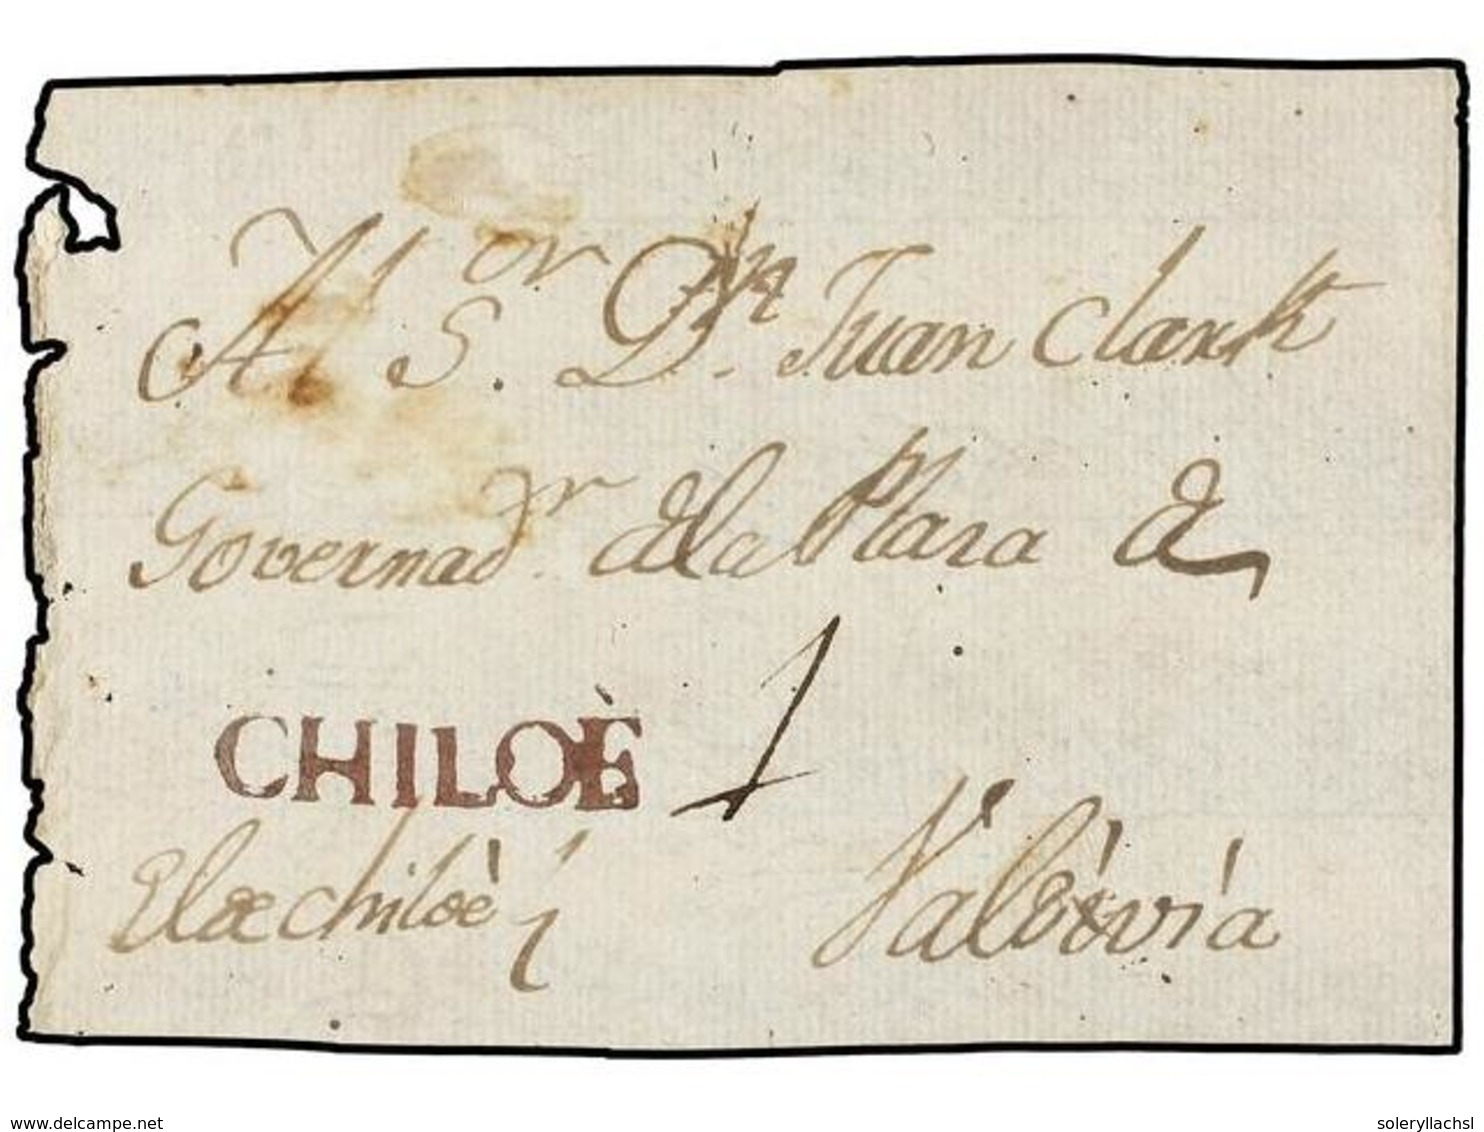 Al S.or D.n Juan Clark
Governad.r dela Plaza de
CHILOÈ 1
El de Chiloè
Valdivia
www.delcampe.net
soleryllachsl